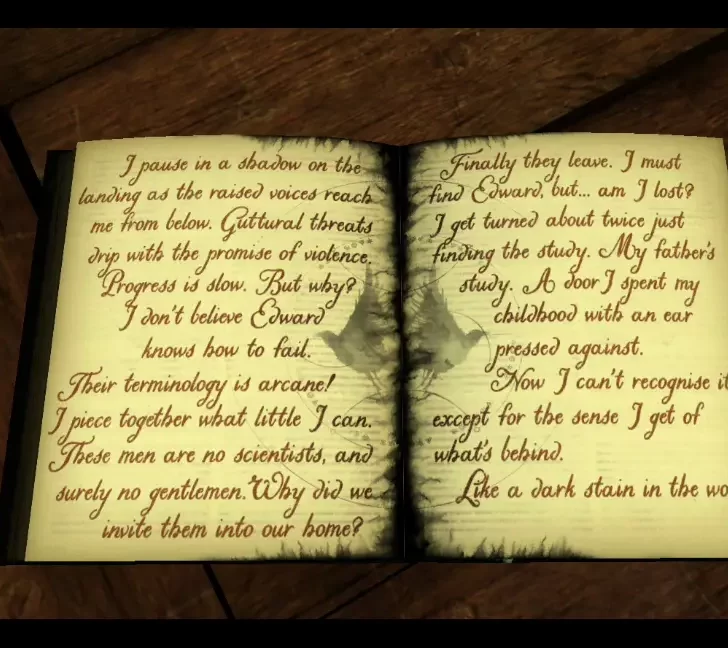 I pause in a shadow on the
landing as the raised voices reach
me from below. Guttural threats
drip with the promise of violence.
Progress is slow. But why?
I don't believe Edward
knows how to fail.
Their terminology is arcane!
I piece together what little I can.
These men are no scientists, and
surely no gentlemen. Why did we
invite them into our home?
Finally they leave. I must
find Edward, but... am I lost?
I get turned about twice just
finding the study. My father's
study. A door I spent my
childhood with an ear
pressed against.
Now I can't recognise it
except for the sense I get of
what's behind.
Like a dark stain in the wo